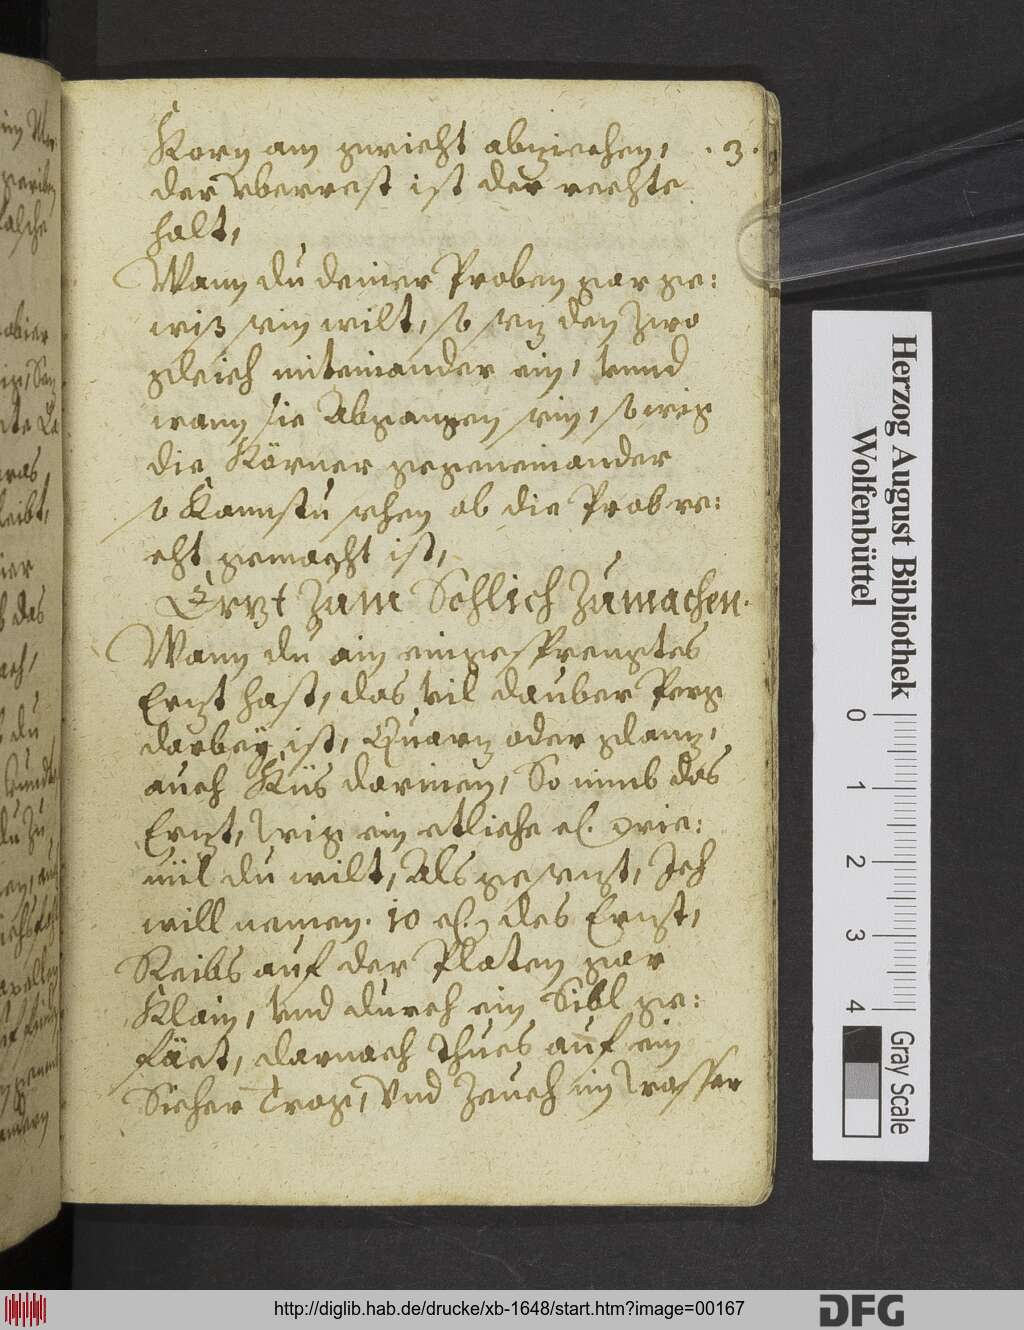 Korn am gewicht abziechen, . 3 .
der vberrest ist der rechte
halt,
Wann du deiner Proben gar ge:
wiß sein wilt, so sez den zwo
gleich miteinander ein, vnnd
wann sie Abgangen sein, so weg
die Körner gegeneinander
so Kannstu sehen ob die Prob re:
cht gemacht ist,
Erzt Zum Schlich Zumachen.
Wann du ain eingesprengtes
Erzt hast, das vil dauber Perg
darbey ist, Quarz oder glanz,
auch Kiis darinen, So nimb das
Erzt, weg ein etliche wie:
uil du wilt, Als gesezt, Ich
will nemen. 10 des Erzt,
Reibs auf der Platen gar
Klain, vnd durch ein Sibl ge:
säet, darnach thues auf ein
Sicher Trog, Vnd Zeuch im Wasser
Herzog August Bibliothek
Wolfenbüttel
0 1 2 3 4
Gray Scale
http://diglib.hab.de/drucke/xb-1648/start.htm?image=00167
DFG